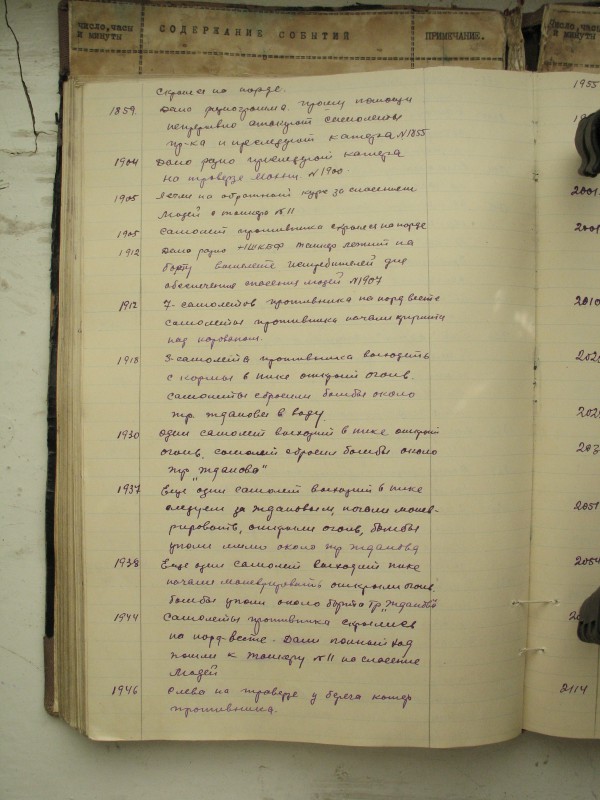 число, часы
и минуты
СОДЕРЖАНИЕ СОБЫТИЙ
ПРИМЕЧАНИЕ.
число, часы
и минуты
скрылся на норде.
1859 Дано радиограмма. прошу помощи
непрерывно атакуют самолеты
пр-ка и преследуют катера N1855
1904 Дано радио преследуют катера
на траверзе N1900
1905 Легли на обратный курс за спасением
людей с танкера N 11
1905 Самолет противника скрылся на норде
1912 Дано радио танкер лежит на
борту вышлите истребителей для
обеспечения спасения людей N1907
1912 7-самолетов противника на норд весте
самолеты противника начали
над караваном.
1918 3-самолета противника выходить
с кормы в пике открыт огонь.
самолеты сбросили бомбы около
тр Жданова в воду.
1930 один самолет выходит в пике открыт
огонь, самолет сбросил бомбы около
тр „Жданова"
1937 Еще один самолет выходит в пике
следуем за Ждановым, начали манев-
рировать, открыли огонь, бомбы
упали мимо около тр Жданова
1938 Еще один самолет выходит пике
начали маневрировать открыли огонь
бомбы упали около борта тр „Жданова"
1944 Самолеты противника скрылись
на норд-весте - Дали полный ход
пошли к танкеру N 11 на спасение
людей
1946 Слева на траверзе у берега катер
противника.
1955
2001
2010
2051
2054
2114